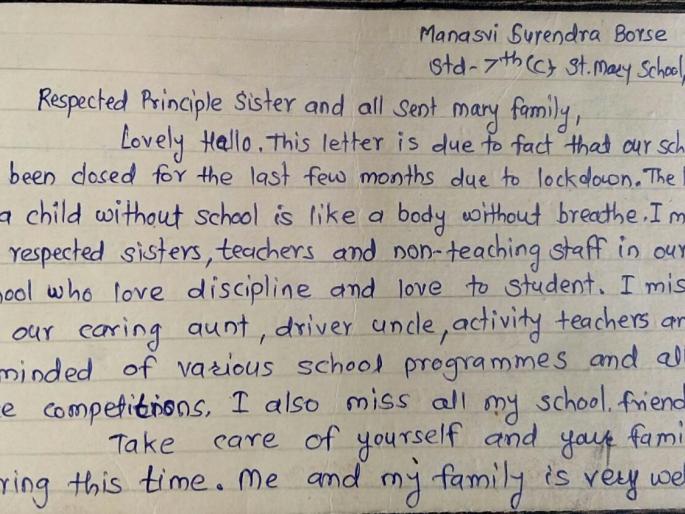 Manasvi Surendra Borse
Std-7th(C) St. Mary School,
Respected Principle Sister and all Sent mary family,
Lovely Hallo. This letter is due to fact that our sch
been closed for the last few months due to lockdown. The
a child without school is like a body without breathe. I m
respected sisters, teachers and non-teaching staff in our
ool who love discipline and love to student. I mis
our caring aunt, driver uncle, activity teachers an
minded of various school programmes and al
e competitions. I also miss all my school. friend
Take care of yourself and your fami
ring this time. Me and my family is very we